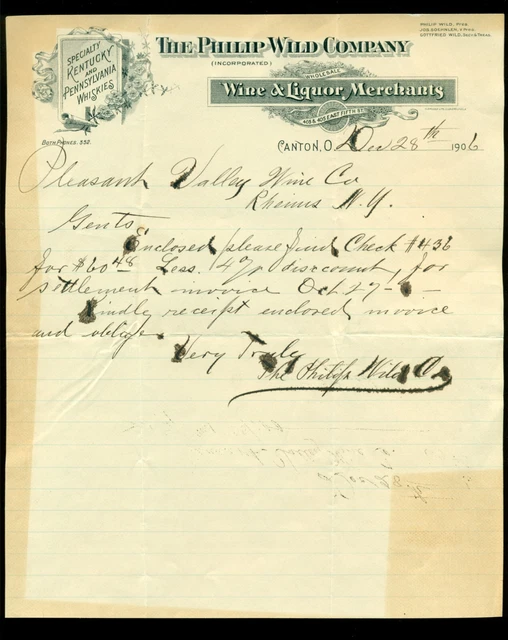 PHILIP WILD, PRES.
GOTTFRIED WILD, SECY & TREAS.
THE PHILIP WILD COMPANY
(INCORPORATED)
WHOLESALE
Wine & Liquor Merchants
EAST FIFTH ST.
SPECIALTY
KENTUCKY
AND
PENNSYLVANIA
WHISKIES
BOTH PHONES. 552.
CANTON, O. Dec 28th 1906
Pleasant Valley Wine Co
Rheims N.Y.
Gents
Enclosed please find Check #436
for $60.48 Less 4% discount, for
settlement invoice Oct 27 -
Kindly receipt enclosed invoice
and oblige.
Very Truly
The Philip Wild Co